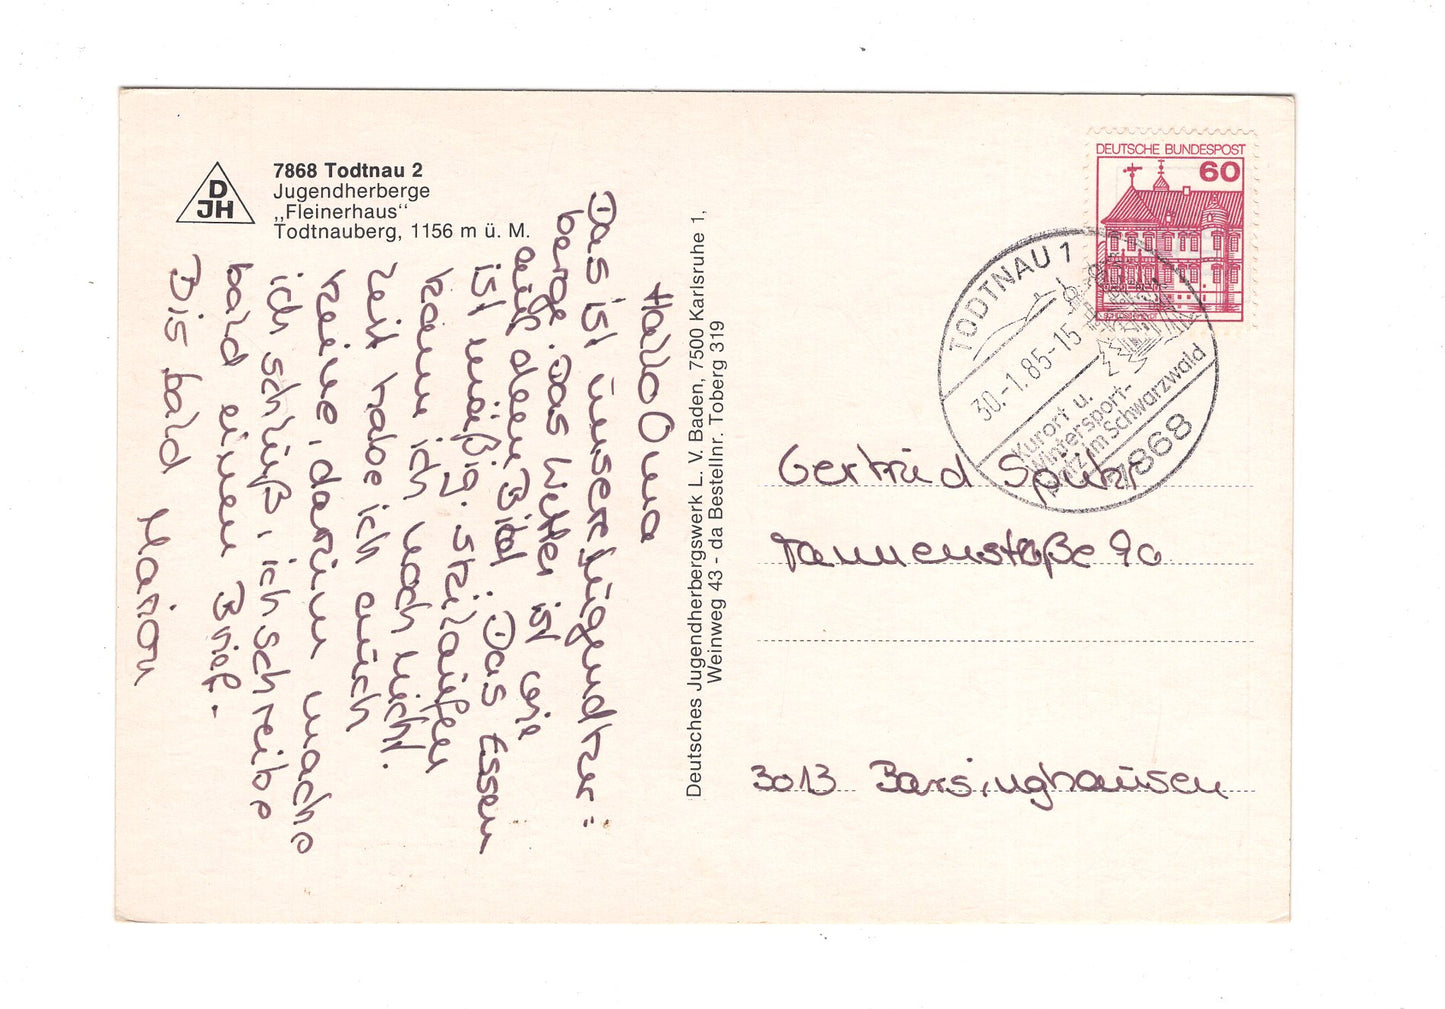 D
JH
7868 Todtnau 2
Jugendherberge
„Fleinerhaus“
Todtnauberg, 1156 m ü. M.
Hallo Oma
Das ist unsere Jugendher=
berge. Das Wetter ist wie
auf dem Bild. Das Essen
ist mäßig. Skilaufen
kann ich noch nicht.
Zeit habe ich auch
keine, darum mache
ich schluß, ich schreibe
bald einen Brief.
Bis bald Marion
Deutsches Jugendherbergswerk L. V. Baden, 7500 Karlsruhe 1,
Weinweg 43 - da Bestellnr. Toberg 319
DEUTSCHE BUNDESPOST
60
TODTNAU 1
30.-1.85-15
Kurort u.
Wintersport-
platz im Schwarzwald
7868
Gertrud Spühr
Tannenstaße 9a
3013 Barsinghausen